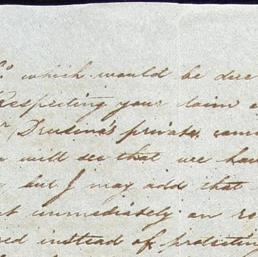 which would be due
Respecting your claim
Drusina's private
will see that we have
but I may add that
immediately an
instead of protecting